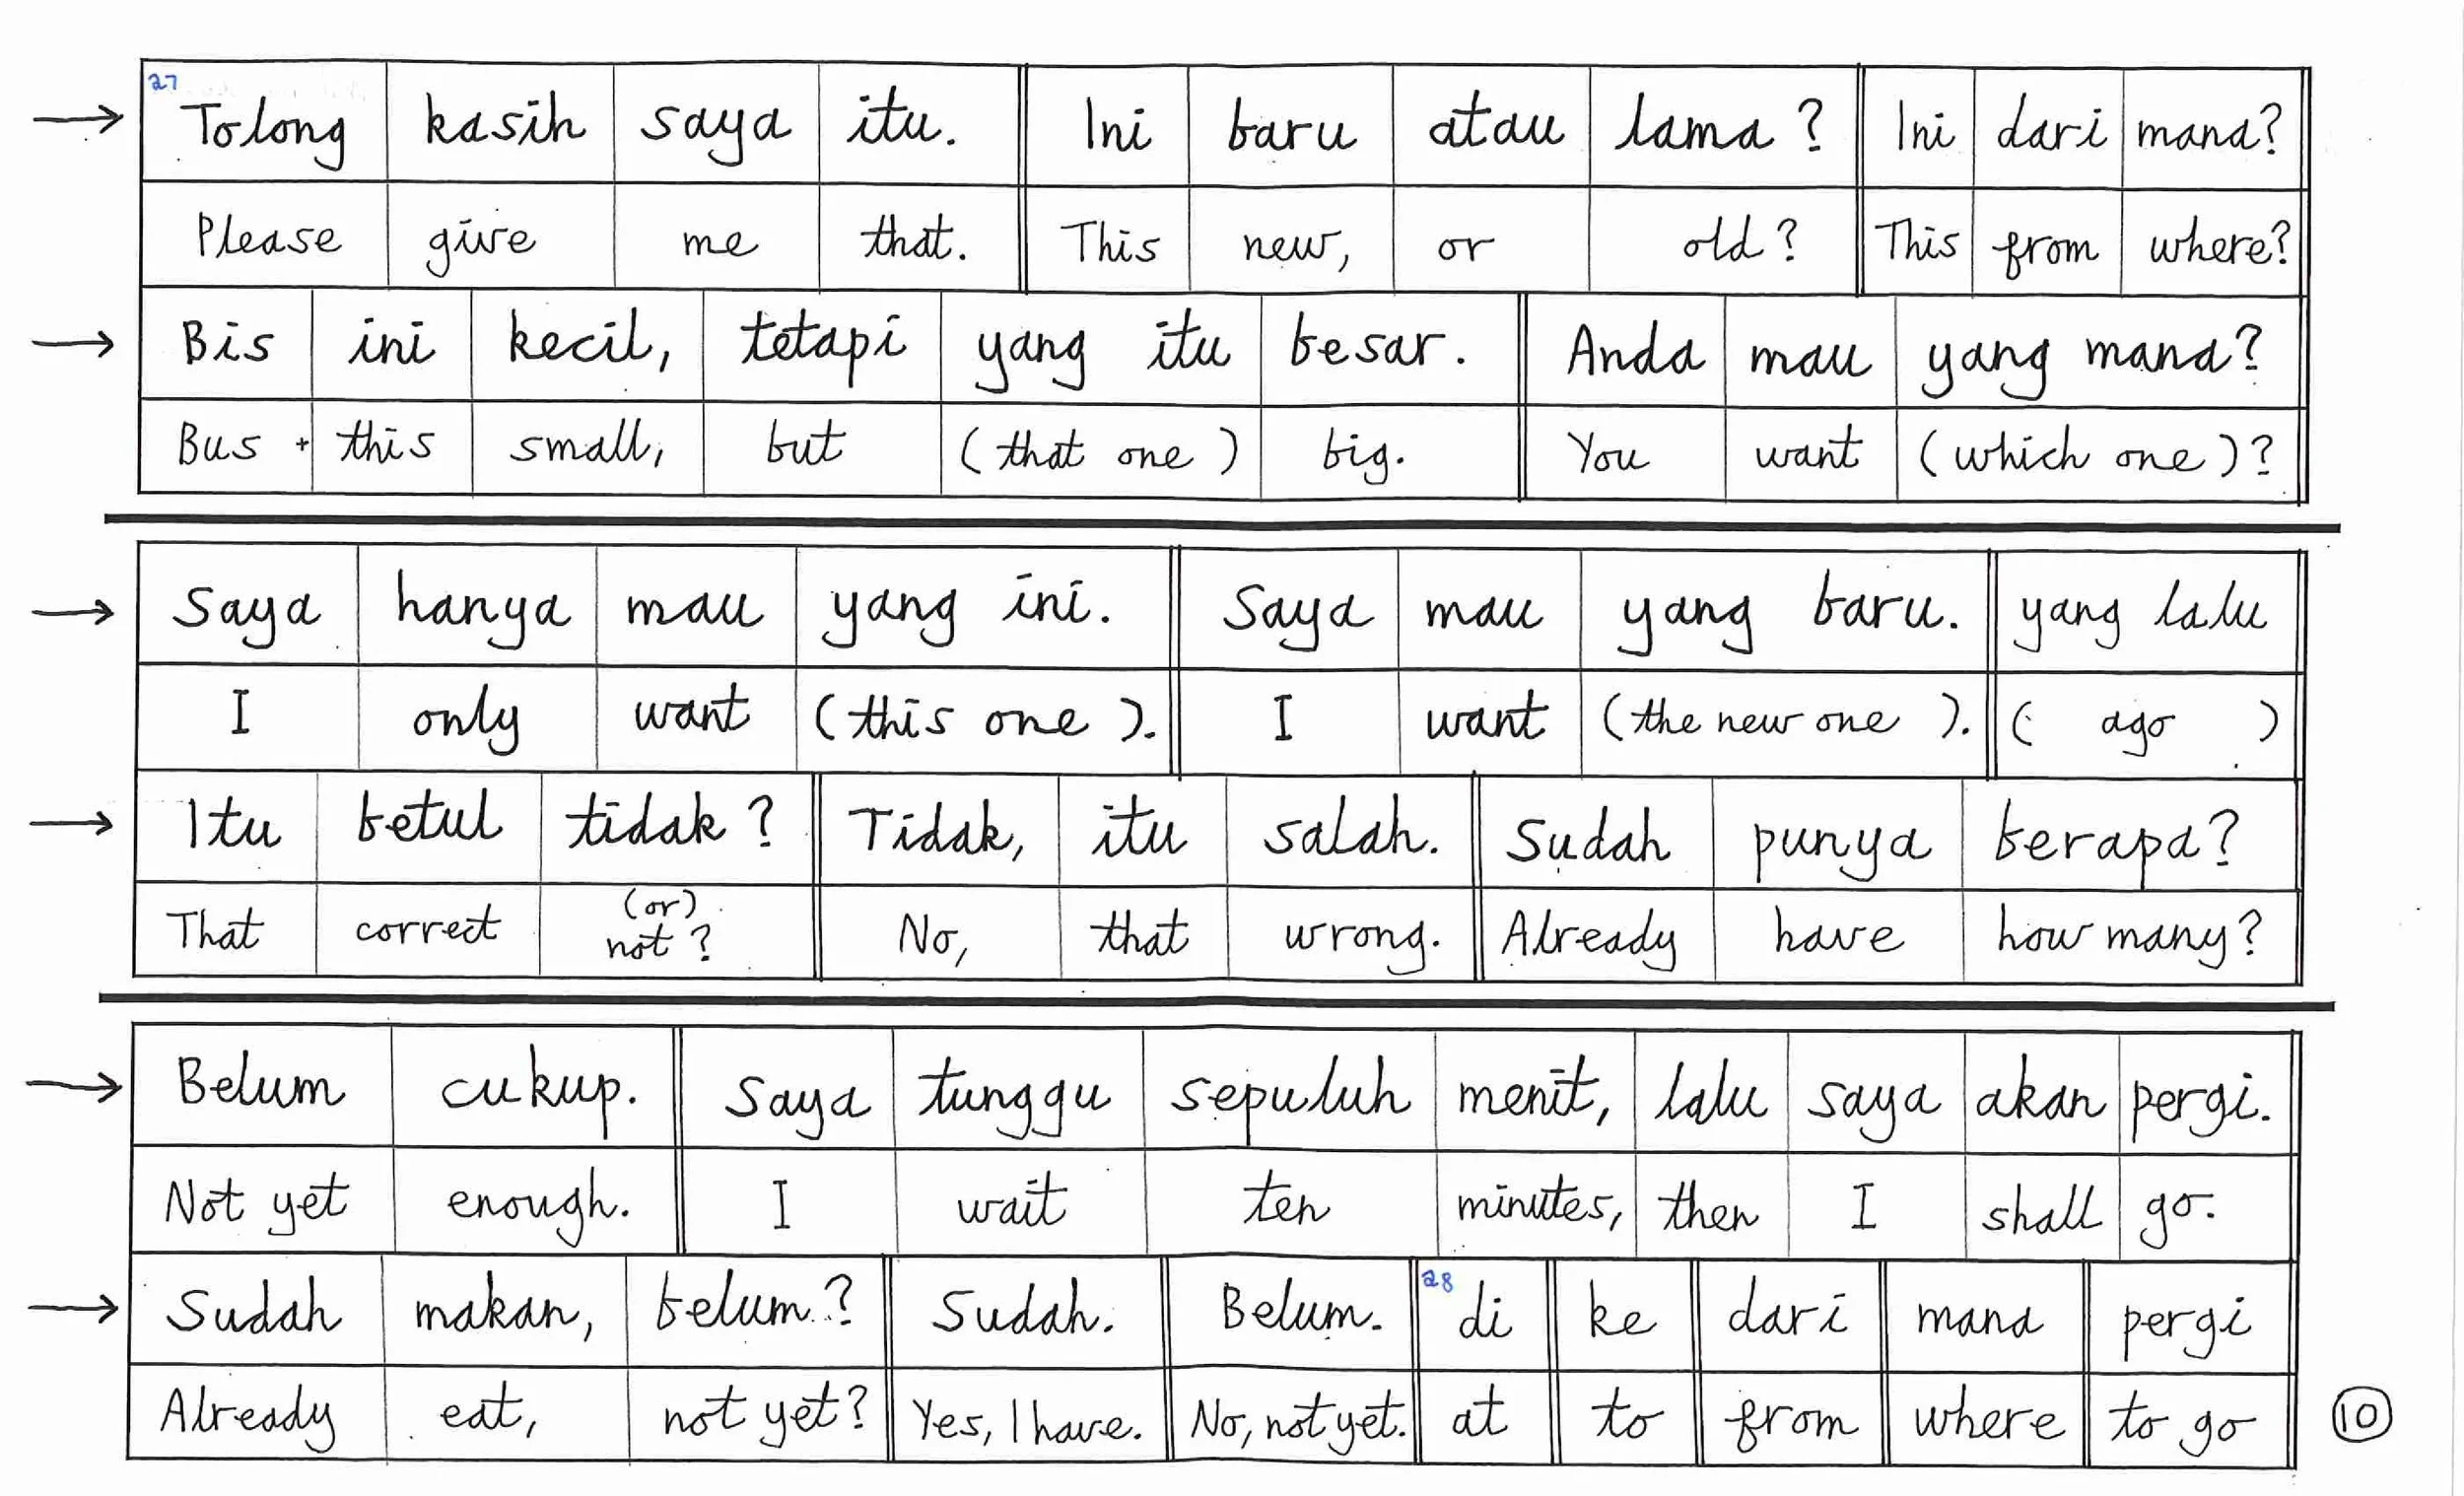 27 Tolong kasih saya itu. Ini baru atau lama? Ini dari mana?
Please give me that. This new, or old? This from where?
Bis ini kecil, tetapi yang itu besar. Anda mau yang mana?
Bus + this small, but (that one) big. You want (which one)?
Saya hanya mau yang ini. Saya mau yang baru. yang lalu
I only want (this one). I want (the new one). (ago)
Itu betul tidak? Tidak, itu salah. Sudah punya berapa?
That correct (or) not? No, that wrong. Already have how many?
Belum cukup. Saya tunggu sepuluh menit, lalu saya akan pergi.
Not yet enough. I wait ten minutes, then I shall go.
Sudah makan, belum? Sudah. Belum. 28 di ke dari mana pergi
Already eat, not yet? Yes, I have. No, not yet. at to from where to go
10